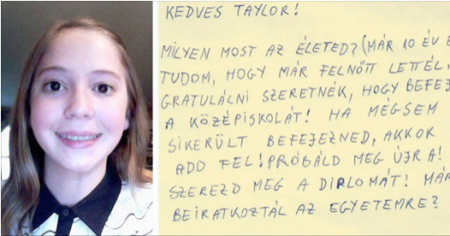 KEDVES TAYLOR!
MILYEN MOST AZ ÉLETED? (MÁR 10 ÉV E
TUDOM, HOGY MÁR FELNŐTT LETTÉL.
GRATULÁLNI SZERETNÉK, HOGY BEFEJ
A KÖZÉPISKOLÁT! HA MÉGSEM
SIKERÜLT BEFEJEZNED, AKKOR
ADD FEL! PRÓBÁLD MEG ÚJRA!
SZEREZD MEG A DIPLOMÁT! MÁR
BEIRATKOZTÁL AZ EGYETEMRE?